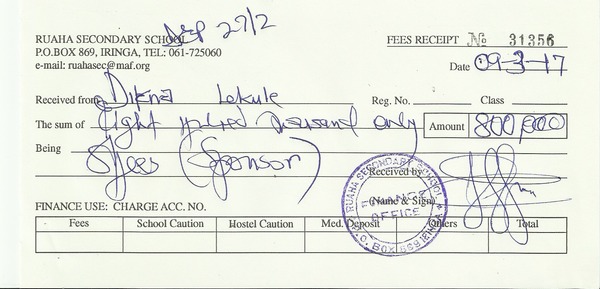 RUAHA SECONDARY SCHOOL
Dep 27/2
FEES RECEIPT No 31356
P.O.BOX 869, IRINGA, TEL: 061-725060
e-mail: ruahasec@maf.org
Date 09-3-17
Received from Lekule Reg. No. Class
The sum of Eight Hundred Thousand only Amount 800,000
Being S/fees (Sponsor)
Received by
(Name & Sign)
RUAHA SECONDARY SCHOOL
FINANCE OFFICE
P.O. BOX 869 IRINGA
FINANCE USE: CHARGE ACC. NO.
Fees School Caution Hostel Caution Med. Deposit Others Total